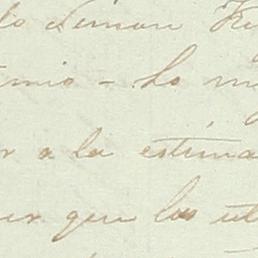 lo Simon
timo - Lo m
r a la estima
er que los ut